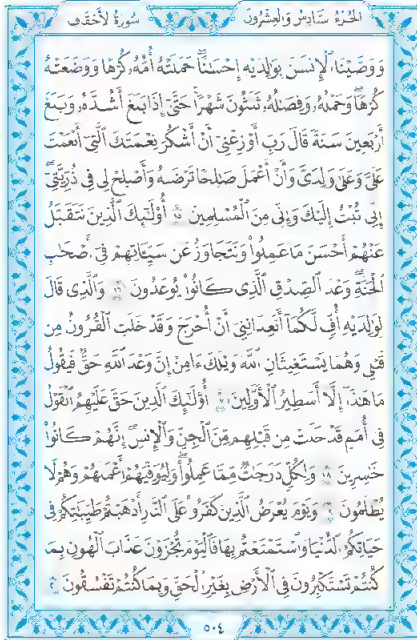 الجزء سادس والعشرون
سورة الأحقاف
ووصينا الإنسن بولديه إحسنا حملته أمه كرها ووضعته
كرها وحمله وفصله ثلثون شهرا حتى إذا بلغ أشده وبلغ
أربعين سنة قال رب أوزعني أن أشكر نعمتك التي أنعمت
علي وعلى ولدي وأن أعمل صلحا ترضه وأصلح لي في ذريتي
إني تبت إليك وإني من المسلمين ١٥ أولئك الذين نتقبل
عنهم أحسن ما عملوا ونتجاوز عن سيئاتهم في أصحب
الجنة وعد الصدق الذي كانوا يوعدون ١٦ والذي قال
لولديه أف لكما أتعدانني أن أخرج وقد خلت القرون من
قبلي وهما يستغيثان الله ويلك ءامن إن وعد الله حق فيقول
ما هذا إلا أسطير الأولين ١٧ أولئك الذين حق عليهم القول
في أمم قد خلت من قبلهم من الجن والإنس إنهم كانوا
خسرين ١٨ ولكل درجت مما عملوا وليوفيهم أعملهم وهم لا
يظلمون ١٩ ويوم يعرض الذين كفروا على النار أذهبتم طيبتكم في
حياتكم الدنيا واستمتعتم بها فاليوم تجزون عذاب الهون بما
كنتم تستكبرون في الأرض بغير الحق وبما كنتم تفسقون ٢٠
٥٠٤